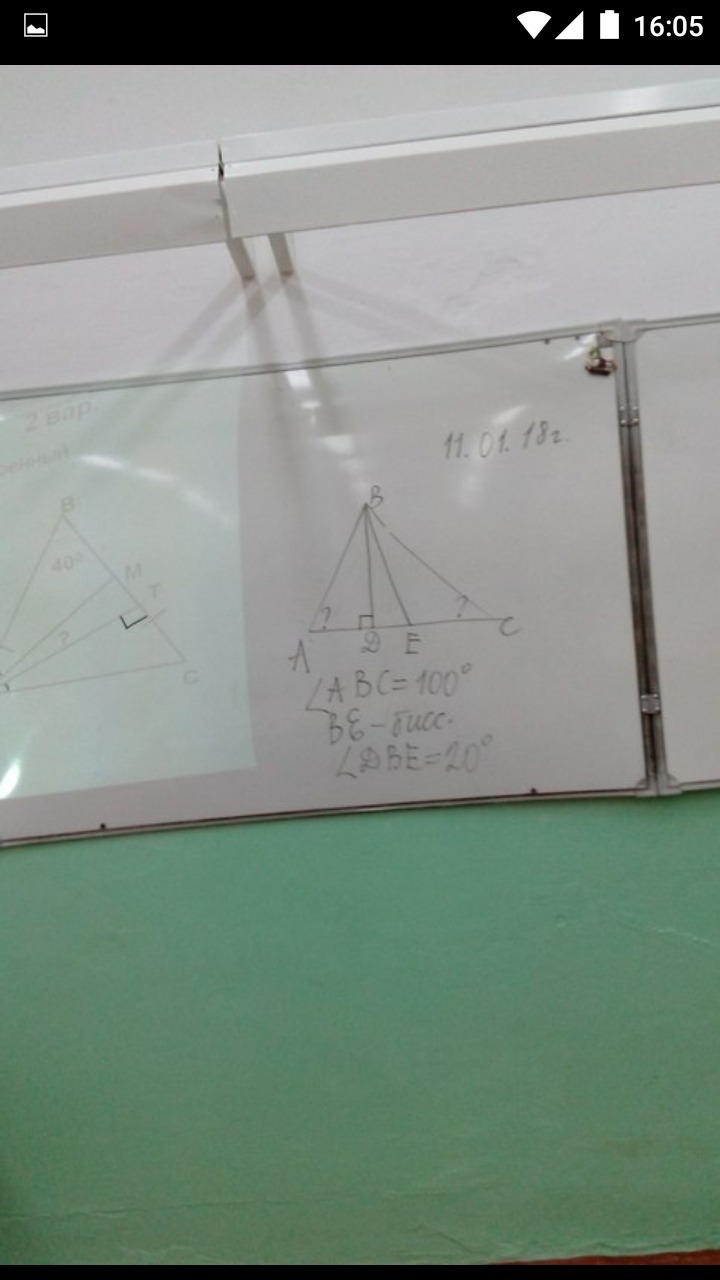 16:05
2 вар.
B
40°
M
T
?
C
11.01.18г.
B
? ?
A D E C
∠ABC=100°
BE-бисс.
∠DBE=20°